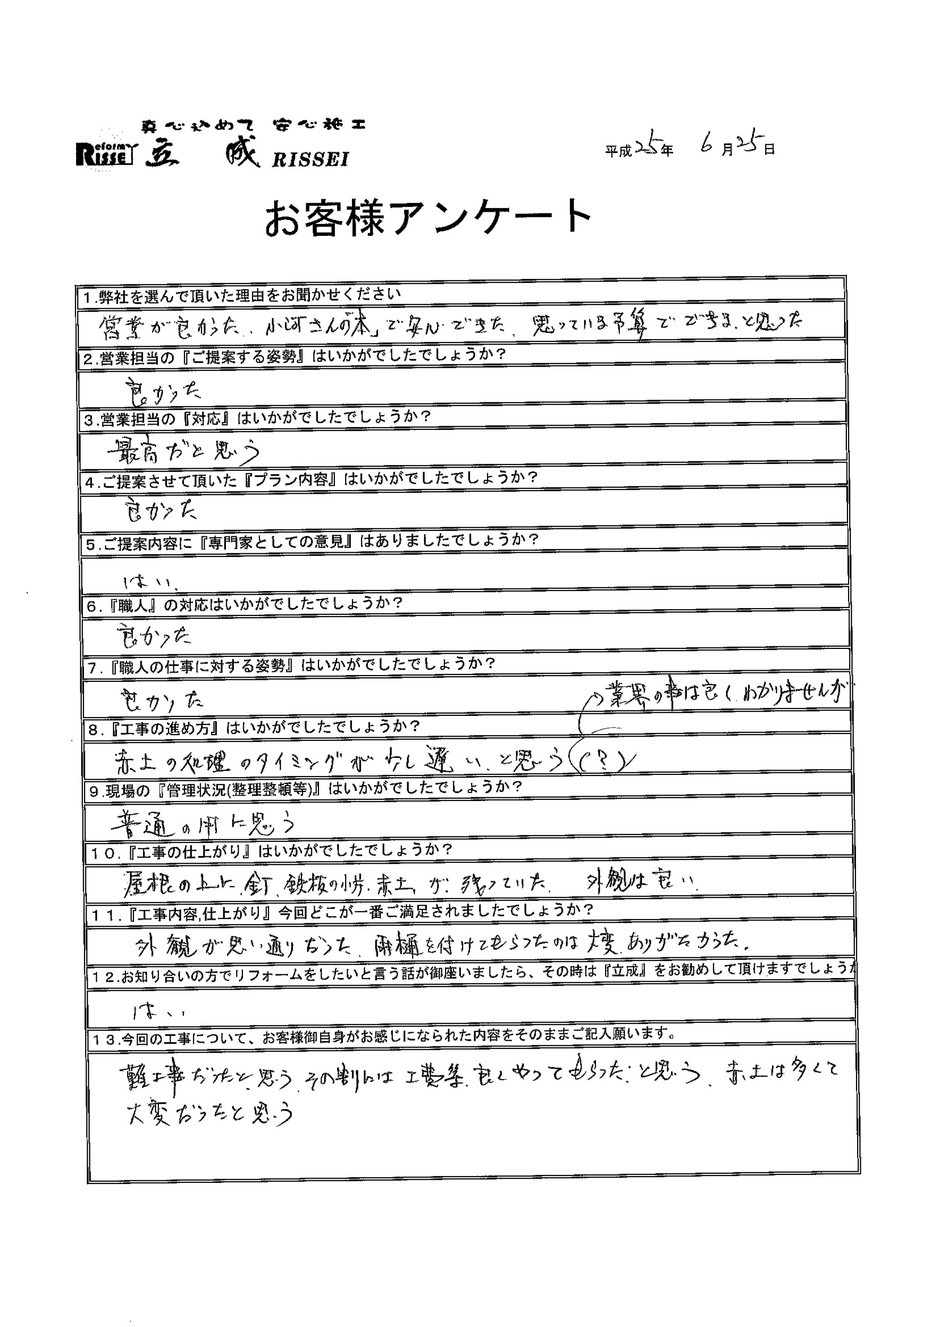 真心込めて 安心施工
Reform RISSEI 立成 RISSEI
平成25年 6月25日
お客様アンケート
1.弊社を選んで頂いた理由をお聞かせください
営業が良かった、小河さんの「本」で安心できた、思っている予算でできると思った
2.営業担当の『ご提案する姿勢』はいかがでしたでしょうか?
良かった
3.営業担当の『対応』はいかがでしたでしょうか?
最高だと思う
4.ご提案させて頂いた『プラン内容』はいかがでしたでしょうか?
良かった
5.ご提案内容に『専門家としての意見』はありましたでしょうか?
はい、
6.『職人』の対応はいかがでしたでしょうか?
良かった
7.『職人の仕事に対する姿勢』はいかがでしたでしょうか?
良かった
業界の事は良くわかりませんが
8.『工事の進め方』はいかがでしたでしょうか?
赤土の処理のタイミングが少し遅い、と思う((?))
9.現場の『管理状況(整理整頓等)』はいかがでしたでしょうか?
普通の用に思う
10.『工事の仕上がり』はいかがでしたでしょうか?
屋根の上に、釘、鉄板の小片、赤土、が、残っていた、 外観は良い、
11.『工事内容,仕上がり』今回どこが一番ご満足されましたでしょうか?
外観が思い通りだった、雨樋を付けてもらったのは大変、ありがたかった。
12.お知り合いの方でリフォームをしたいと言う話が御座いましたら、その時は『立成』をお勧めして頂けますでしょうか
はい
13.今回の工事について、お客様御自身がお感じになられた内容をそのままご記入願います。
難工事だったと思う、その割には工費等、良くやってもらった、と思う、赤土は多くて
大変だったと思う